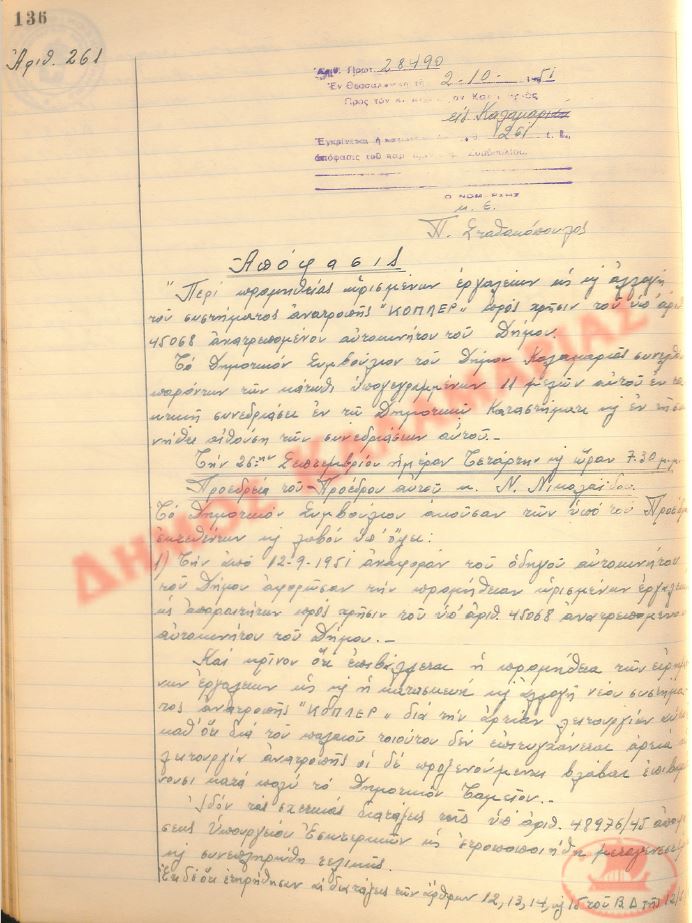 136
Ἀριθ. 261
Ἀριθ. Πρωτ. 28490
Ἐν Θεσσαλονίκῃ τῇ 2-10-1951
Πρὸς τὸν κ.
εἰς Καλαμαριὰν
Ἐγκρίνεται ἡ 261
ἀπόφασις τοῦ Συμβουλίου
Ο ΝΟΜΑΡΧΗΣ
μ. ἐ.
Π. Σταθακόπουλος
Ἀπόφασις
"Περὶ προμηθείας ὡρισμένων ἐργαλείων ὡς κ ἀλλαγὴ
τοῦ συστήματος ἀνατροπῆς "ΚΟΠΛΕΡ" πρὸς χρῆσιν τοῦ ὑπ' ἀριθ
45068 ἀνατρεπομένου αὐτοκινήτου τοῦ Δήμου.
Τὸ Δημοτικὸν Συμβούλιον τοῦ Δήμου Καλαμαριᾶς συνελθὸν
παρόντων τῶν κάτωθι ὑπογεγραμμένων 11 μελῶν αὐτοῦ ἐν τα
κτικῇ συνεδριάσει ἐν τῷ Δημοτικῷ Καταστήματι κ ἐν τῇ συ
νήθει αἰθούσῃ τῶν συνεδριάσεων αὐτοῦ.-
Τὴν 26ην Σεπτεμβρίου ἡμέραν Τετάρτην κ ὥραν 7.30 μ.μ.
Προεδρείᾳ τοῦ Προέδρου αὐτοῦ κ. Ν. Νικολαΐδου.
Τὸ Δημοτικὸν Συμβούλιον ἀκοῦσαν τῶν ὑπὸ τοῦ Προέδρ
ἐκτεθέντων κ λαβὸν ὑπ' ὄψει:
1) Τὴν ἀπὸ 12-9-1951 ἀναφορὰν τοῦ ὁδηγοῦ αὐτοκινήτου
τοῦ Δήμου ἀφορῶσαν τὴν προμήθειαν ὡρισμένων ἐργαλείων
ὡς ἀπαραιτήτων πρὸς χρῆσιν τοῦ ὑπ' ἀριθ. 45068 ἀνατρεπομένου
αὐτοκινήτου τοῦ Δήμου.-
Καὶ κρῖνον ὅτι ἐπιβάλλεται ἡ προμήθεια τῶν εἰρημέ
νων ἐργαλείων ὡς κ ἡ κατασκευὴ κ ἀλλαγὴ νέου συστήμα
τος ἀνατροπῆς "ΚΟΠΛΕΡ" διὰ τὴν ἀρτίαν λειτουργίαν
καθ' ὅτι διὰ τοῦ παλαιοῦ τοιούτου δὲν ἐπιτυγχάνεται ἀρτία
λειτουργία ἀνατροπῆς αἱ δὲ προξενούμεναι βλάβαι ἐπιβαρύ
νουσι κατὰ πολὺ τὸ Δημοτικὸν Ταμεῖον.-
Ἰδὸν τὰς σχετικὰς διατάξεις τῆς ὑπ' ἀριθ. 48976/45 ἀποφά
σεως Ὑπουργείου Ἐσωτερικῶν ὡς ἐτροποποιήθη μεταγενεστέρ
κ συνεπληρώθη τελικῶς.
Ἐπειδὴ ἐτηρήθησαν αἱ διατάξεις τῶν ἄρθρων 12, 13, 14, κ 15 τοῦ Β.Δ τῆς 12/6
ΔΗΜΟΣ ΚΑΛΑΜΑΡΙΑΣ